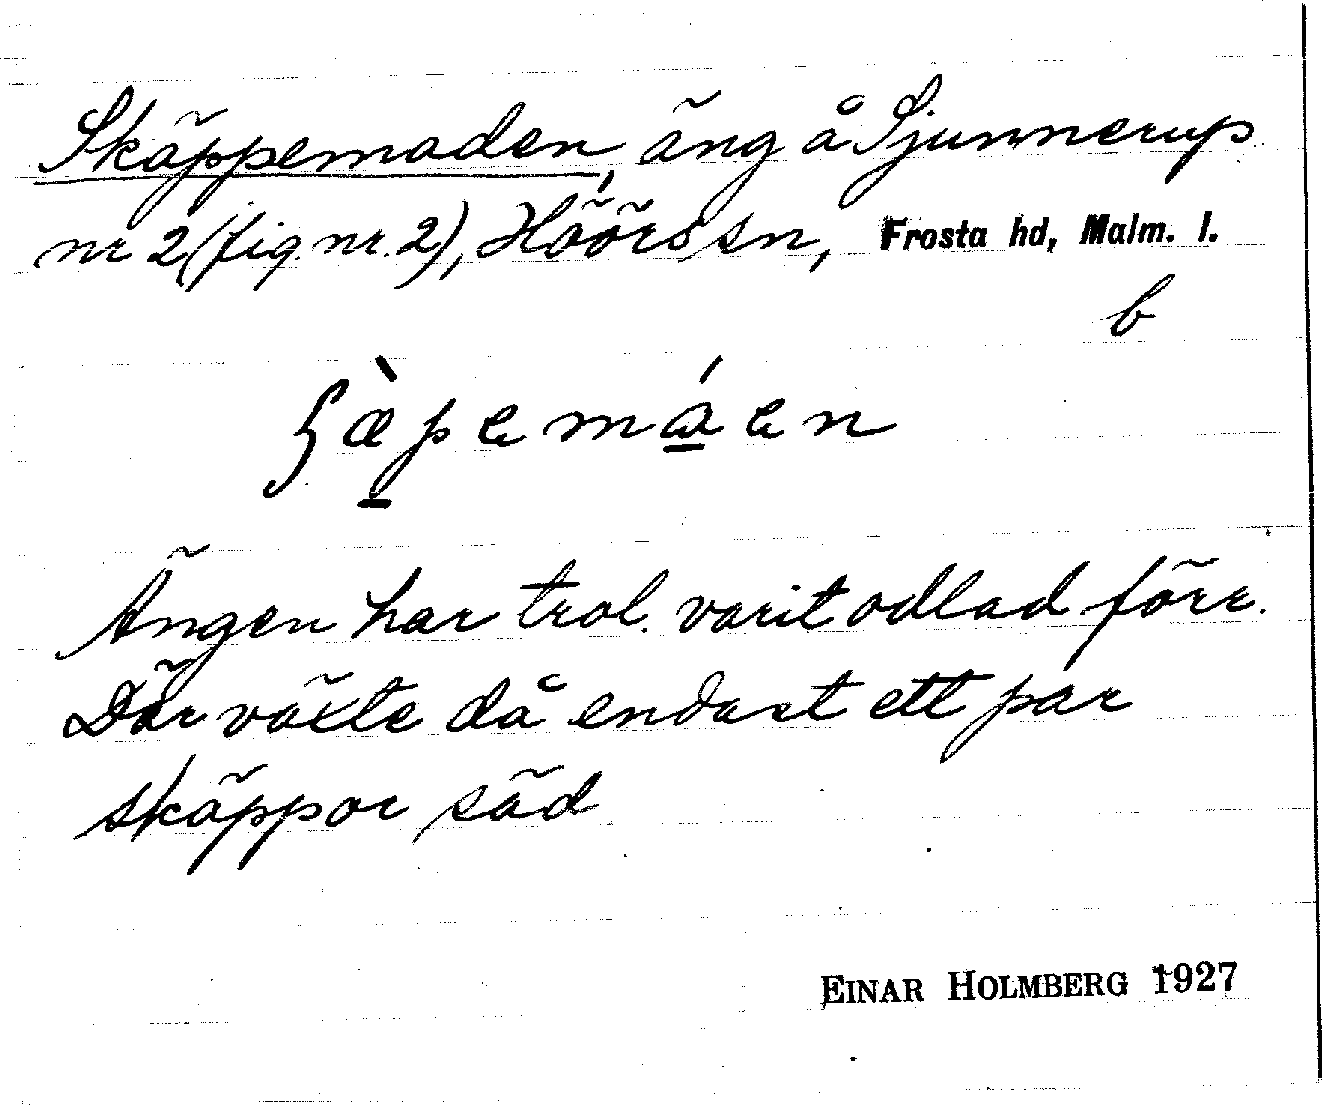 Skäppemaden, äng å Sjunnerup
nr 2 (fig. nr. 2), Höörs sn, Frosta hd, Malm. l.
b
ʃæ̀pemáen
Ängen har trol. varit odlad förr.
Där växte då endast ett par
skäppor säd
EINAR HOLMBERG 1927